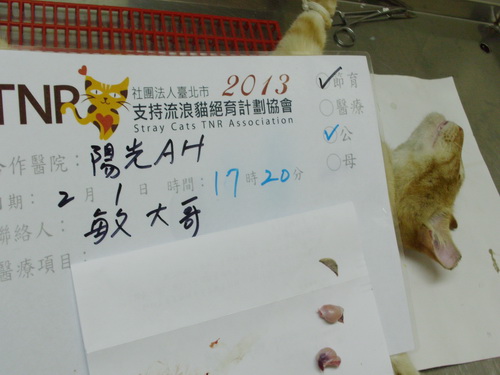 TNR 社團法人臺北市 2013
支持流浪貓絕育計劃協會
Stray Cats TNR Association
✓節育
醫療
✓公
母
合作醫院：陽光AH
日期：2月1日 時間：17時20分
聯絡人：敏大哥
醫療項目：